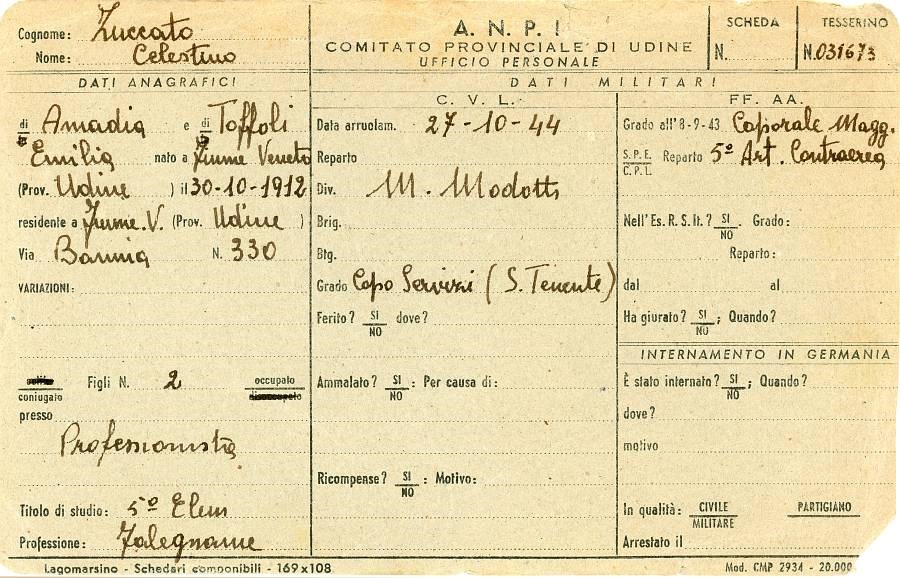 Cognome: Zuccato
Nome: Celestino
A. N. P. I
COMITATO PROVINCIALE DI UDINE
UFFICIO PERSONALE
SCHEDA
N.
TESSERINO
N. 031673
DATI ANAGRAFICI
di Amadio e di Toffoli
Emilia nato a Fiume Veneto
(Prov. Udine ) il 30-10-1912
residente a Fiume. V. (Prov. Udine )
Via Bannia N. 330
VARIAZIONI:
coniugato Figli N. 2 occupato
disoccupato
presso
Professionista
Titolo di studio: 5º Elem
Professione: Falegname
DATI MILITARI
C. V. L.
Data arruolam. 27-10-44
Reparto
Div. M. Modotti
Brig.
Btg.
Grado Capo Servizi (S. Tenente)
Ferito? SI
NO dove?
Ammalato? SI
NO : Per causa di:
Ricompense? SI
NO : Motivo:
FF. AA.
Grado all'8-9-43 Caporale Magg.
S.P.E.
C.P.L. Reparto 5º Art. Contraerea
Nell'Es. R. S. It.? SI
NO . Grado:
Reparto:
dal al
Ha giurato? SI
NO ; Quando?
INTERNAMENTO IN GERMANIA
È stato internato? SI
NO ; Quando?
dove?
motivo
In qualità: CIVILE
MILITARE PARTIGIANO
Arrestato il
Lagomarsino - Schedari componibili - 169x108
Mod. CMP 2934 - 20.000